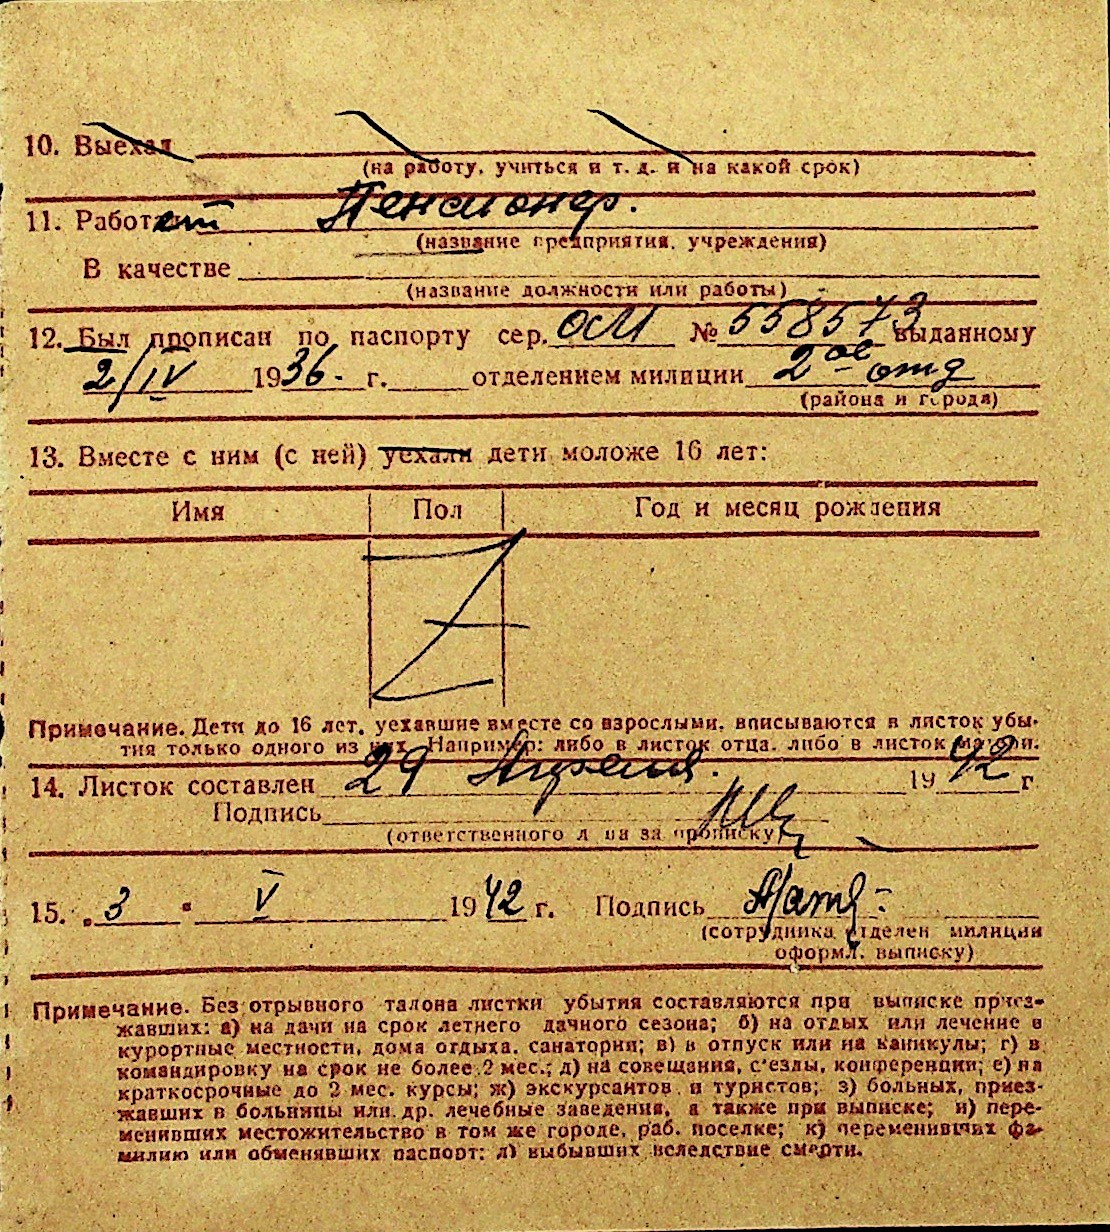 10. Выехал
(на работу, учиться и т. д. и на какой срок)
11. Работает Пенсионер.
(название предприятия, учреждения)
В качестве
(название должности или работы)
12. Был прописан по паспорту сер. ОСМ № 558573 выданному
2/IV 1936. г. отделением милиции 2ое отд
(района и города)
13. Вместе с ним (с ней) уехали дети моложе 16 лет:
Имя Пол Год и месяц рождения
Z
Примечание. Дети до 16 лет, уехавшие вместе со взрослыми, вписываются в листок убы-
тия только одного из них. Например: либо в листок отца, либо в листок матери.
14. Листок составлен 29 Апреля. 1942 г
Подпись
(ответственного лица за прописку)
15. „3" V 1942 г. Подпись
(сотрудника отделен милиции
оформл. выписку)
Примечание. Без отрывного талона листки убытия составляются при выписке приез-
жавших: а) на дачи на срок летнего дачного сезона; б) на отдых или лечение в
курортные местности, дома отдыха, санатории; в) в отпуск или на каникулы; г) в
командировку на срок не более 2 мес.; д) на совещания, с'езды, конференции; е) на
краткосрочные до 2 мес. курсы; ж) экскурсантов и туристов; з) больных, приез-
жавших в больницы или др. лечебные заведения, а также при выписке; и) пере-
менивших местожительство в том же городе, раб. поселке; к) переменивших фа-
милию или обменявших паспорт; л) выбывших вследствие смерти.